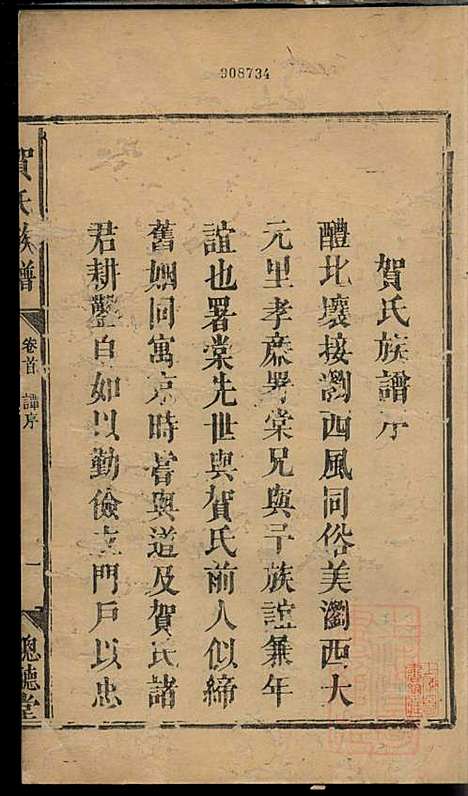 908734
賀氏族譜序
醴北壤接瀏西風同俗美瀏西大
元里孝廉署棠兄與予族誼兼年
誼也署棠先世與賀氏前人似締
舊姻同寓京時嘗與道及賀氏諸
君耕鑿自如以勤儉立門戶以忠
賀氏族譜
卷首
譜序
一
聰聽堂